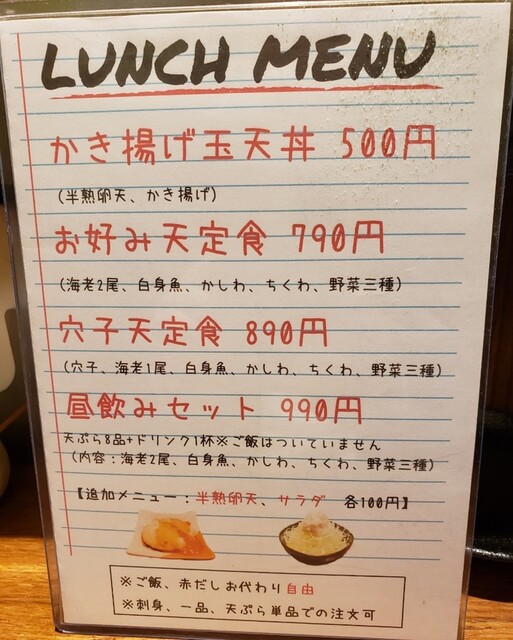 LUNCH MENU
かき揚げ玉天丼 500円
(半熟卵天、かき揚げ)
お好み天定食 790円
(海老2尾、白身魚、かしわ、ちくわ、野菜三種)
穴子天定食 890円
(穴子、海老1尾、白身魚、かしわ、ちくわ、野菜三種)
昼飲みセット 990円
天ぷら8品+ドリンク1杯※ご飯はついていません
(内容:海老2尾、白身魚、かしわ、ちくわ、野菜三種)
【追加メニュー:半熟卵天、サラダ 各100円】
※ご飯、赤だしお代わり自由
※刺身、一品、天ぷら単品での注文可